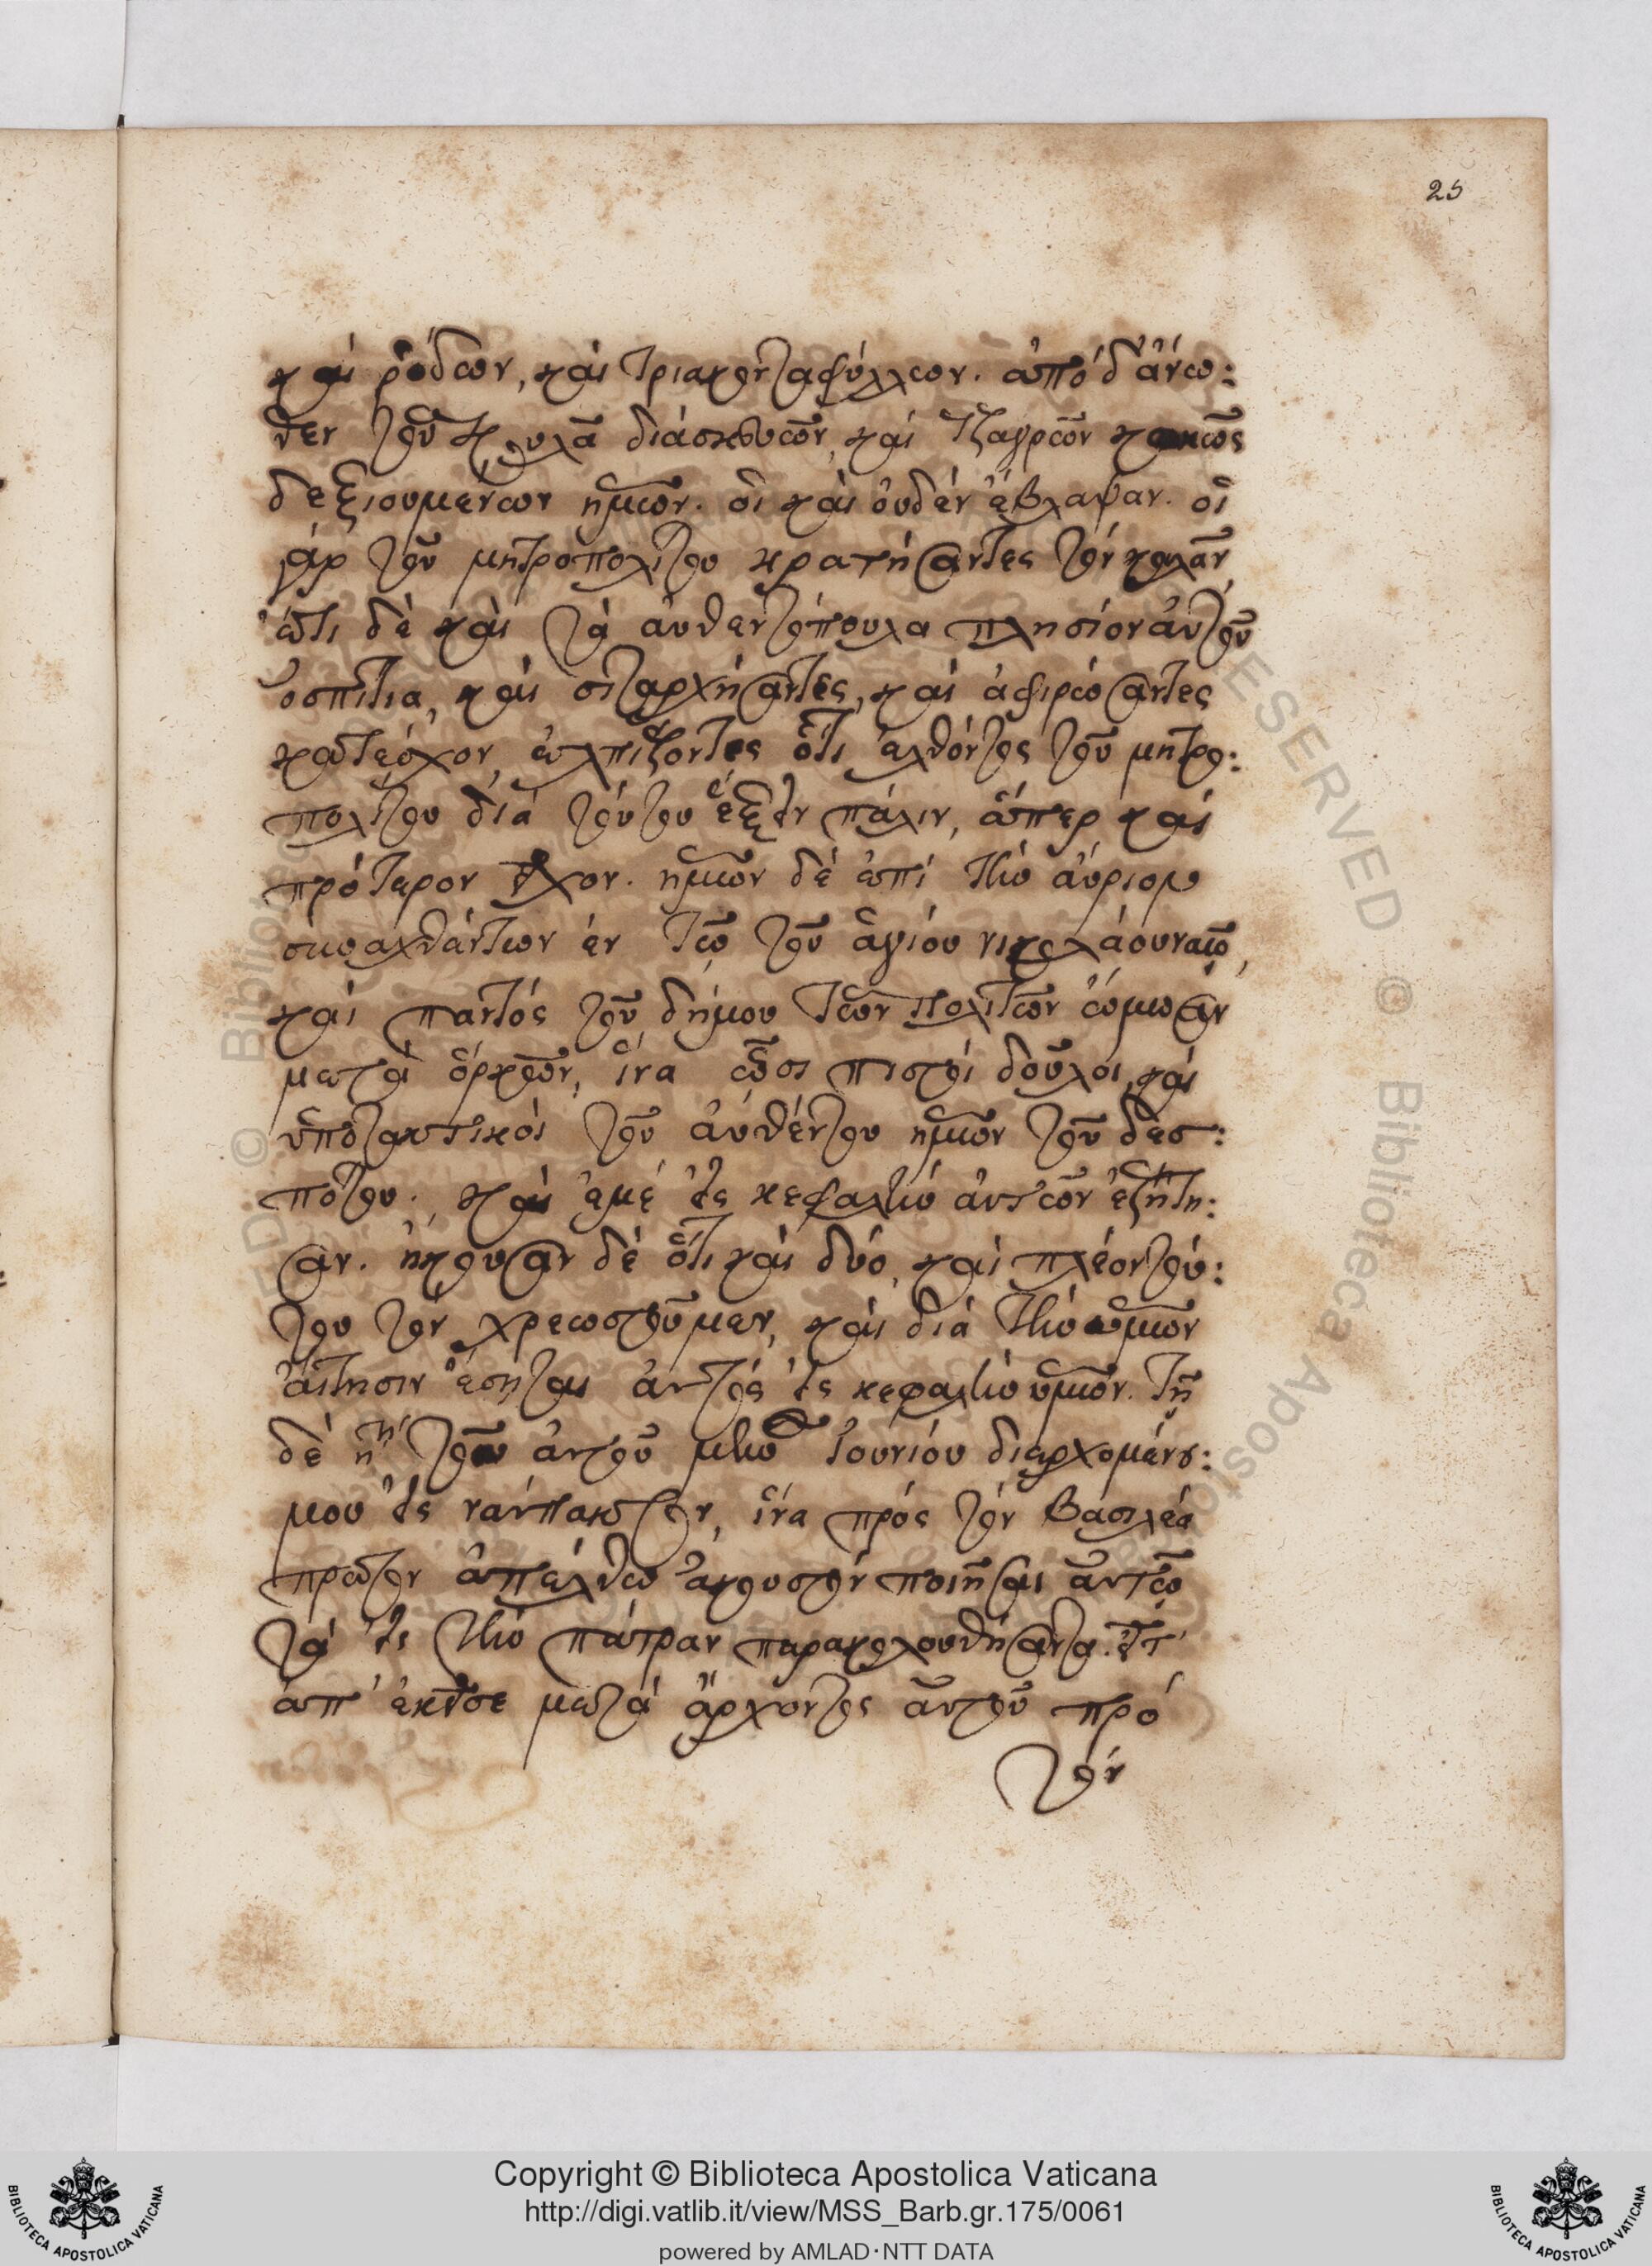 25
καὶ ῥόδων, καὶ τριακονταφύλλων. ἀπὸ δ' ἄνω:
θεν τοῦ κουλᾶ διὰ σκευῶν, καὶ τζαγρῶν κακῶς
δεξιουμένων ἡμῶν. οἳ καὶ οὐδὲν ἔβλαψαν. οἱ
γὰρ τοῦ μητροπολίτου κρατήσαντες τὸν κουλᾶν,
ἔτι δὲ καὶ τὰ αὐθεντόπουλα πλησίον αὐτοῦ
ὀσπίτια, καὶ σιταρχήσαντες, καὶ ἀφιρώσαντες
κατεῖχον, ἐλπίζοντες ὅτι ἐλθόντος τοῦ μητρο:
πολίτου διὰ τούτου ἕξειν πάλιν, ἅπερ καὶ
πρότερον εἶχον. ἡμῶν δὲ ἐπὶ τὴν αὔριον
συναχθέντων ἐν τῷ τοῦ ἁγίου νικολάου ναῷ,
καὶ παντὸς τοῦ δήμου τῶν πολιτῶν ὤμοσαν
μετὰ ὅρκου, ἵνα ὦσι πιστοὶ δοῦλοι, καὶ
ὑποτακτικοὶ τοῦ αὐθέντου ἡμῶν τοῦ δεσ:
πότου. καὶ ἐμὲ εἰς κεφαλὴν αὐτῶν ἐζήτη:
σαν. ἤκουσαν δὲ ὅτι καὶ δύο, καὶ πλέον τού:
του τὸν χρεωστοῦμεν, καὶ διὰ τὴν ὑμῶν
αἴτησιν ἔσηται αὐτὸς εἰς κεφαλὴν ὑμῶν. τῇ
δὲ ηῃ τοῦ αὐτοῦ μηνὸς Ἰουνίου διερχομένου:
μου εἰς ναύπακτον, ἵνα πρὸς τὸν βασιλέα
πρῶτον ἀπέλθω ἀκουστὸν ποιῆσαι αὐτῷ
τὰ εἰς τὴν πάτραν παρακολουθήσαντα. εἶτ'
ἀπ' ἐκεῖσε μετὰ ἄρχοντος αὐτοῦ πρὸ
τὸν
© Biblioteca Apostolica Vaticana
Copyright © Biblioteca Apostolica Vaticana
http://digi.vatlib.it/view/MSS_Barb.gr.175/0061
powered by AMLAD·NTT DATA
BIBLIOTECA APOSTOLICA VATICANA
BIBLIOTECA APOSTOLICA VATICANA